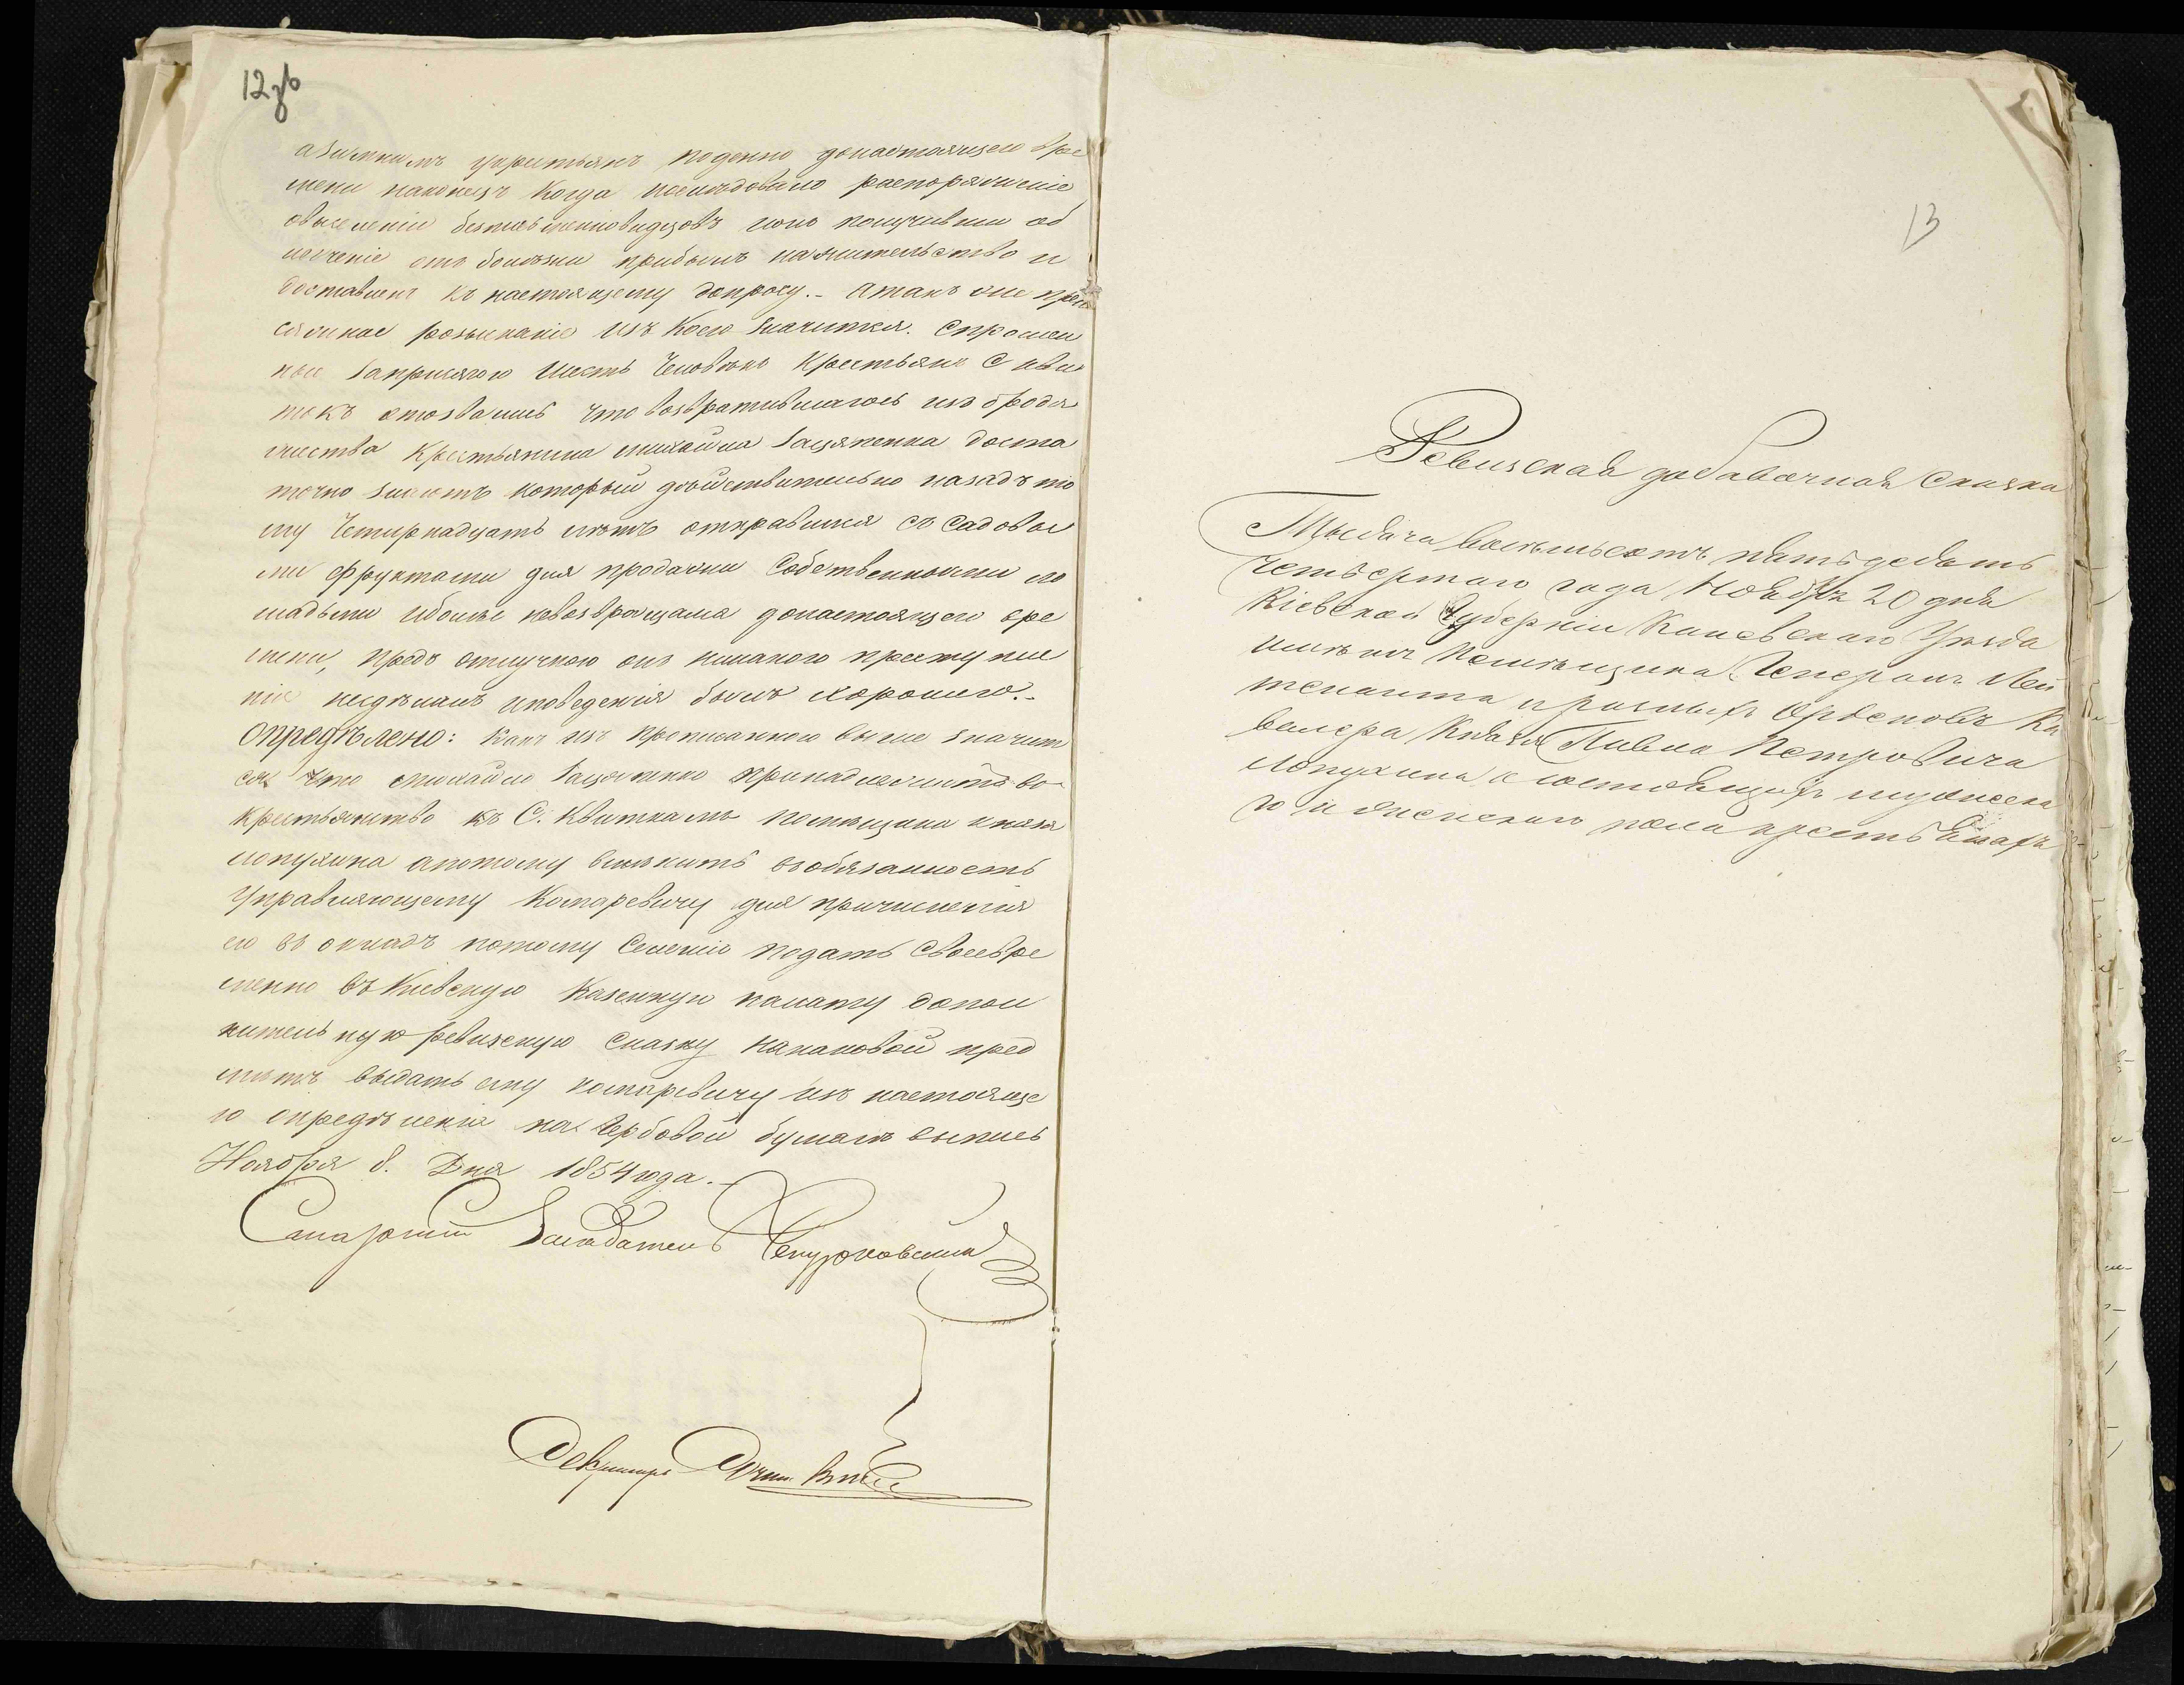 12 об
азимкимъ укрестьянъ поденно донастоящего вре
мени наконецъ когда последовало распоряжение
овыселении безписменновидцовъ гоно получивши об
легчение отъ болезни прибылъ нажительство и
доставленъ къ настоящему допросу. — Атакъ оне при
сяжное розыскание изъ коего значится. Спрошен
ные заприсягою шесть человекъ крестьянъ С. кви
токъ отозвались что возвратившагось изъ бродя
жества крестьянина михайла Зацепенка доста
точно знаютъ который действительно назадъ то
му четирнадцать летъ отправился съ садовы
ми фруктами для продажи собственными ло
шадьми иболье невозвращался донастоящего вре
мени, предъ отлучкою онъ никакого преступле
ния неделалъ иповедения былъ хорошего. —
Опредѣлено: какъ изъ прописанного выше значит
ся что михайло Зацепенко принадлежитъ во
крестьянство къ С. Квиткамъ помѣщика князя
лопухина апотому вменить вобязанность
Управляющему Комаревичу для причисления
его въ окладъ потому селению подать своевре
менно въ Киевскую Казенную палату допол
нительную ревизскую сказку накаковой пред
метъ выдать ему комаревичу изъ настояще
го определения на гербовой бумаге выпись
Ноября 8. Дня 1854 года. —
Старший Заседатель
Секретарь
13
Ревизская добавочная сказка
Тысяча восемьсотъ пятьдесятъ
Четвертого года Ноября 20 дня
Кіевской Губерніи Каневского Уезда
имѣнія Помѣщика Генералъ Лей
тенанта и разныхъ Орденовъ Ка
валера Князя Павла Петровича
Лопухина о состоящихъ мужеска
го и женского пола крестьянахъ